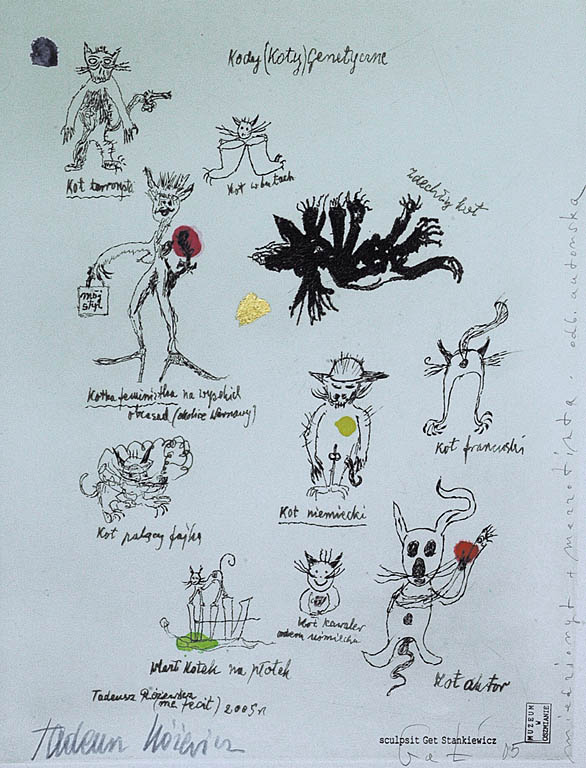 Kody (Koty) Genetyczne
Kot terrorysta
Kot w butach
zdechły kot
mój
styl
Kotka feministka na wysokich
obcasach (okolice Warszawy)
Kot francuski
Kot niemiecki
Kot palący fajkę
Kot kawaler
orderu uśmiechu
Kot aktor
wlazł kotek na płotek
Tadeusz Różewicz
me fecit) 2005 r
Tadeusz Różewicz
sculpsit Get Stankiewicz
Get 05
MUZEUM
W
OBORNIANIE
miedzioryt + mezzotinta. odb. autorska